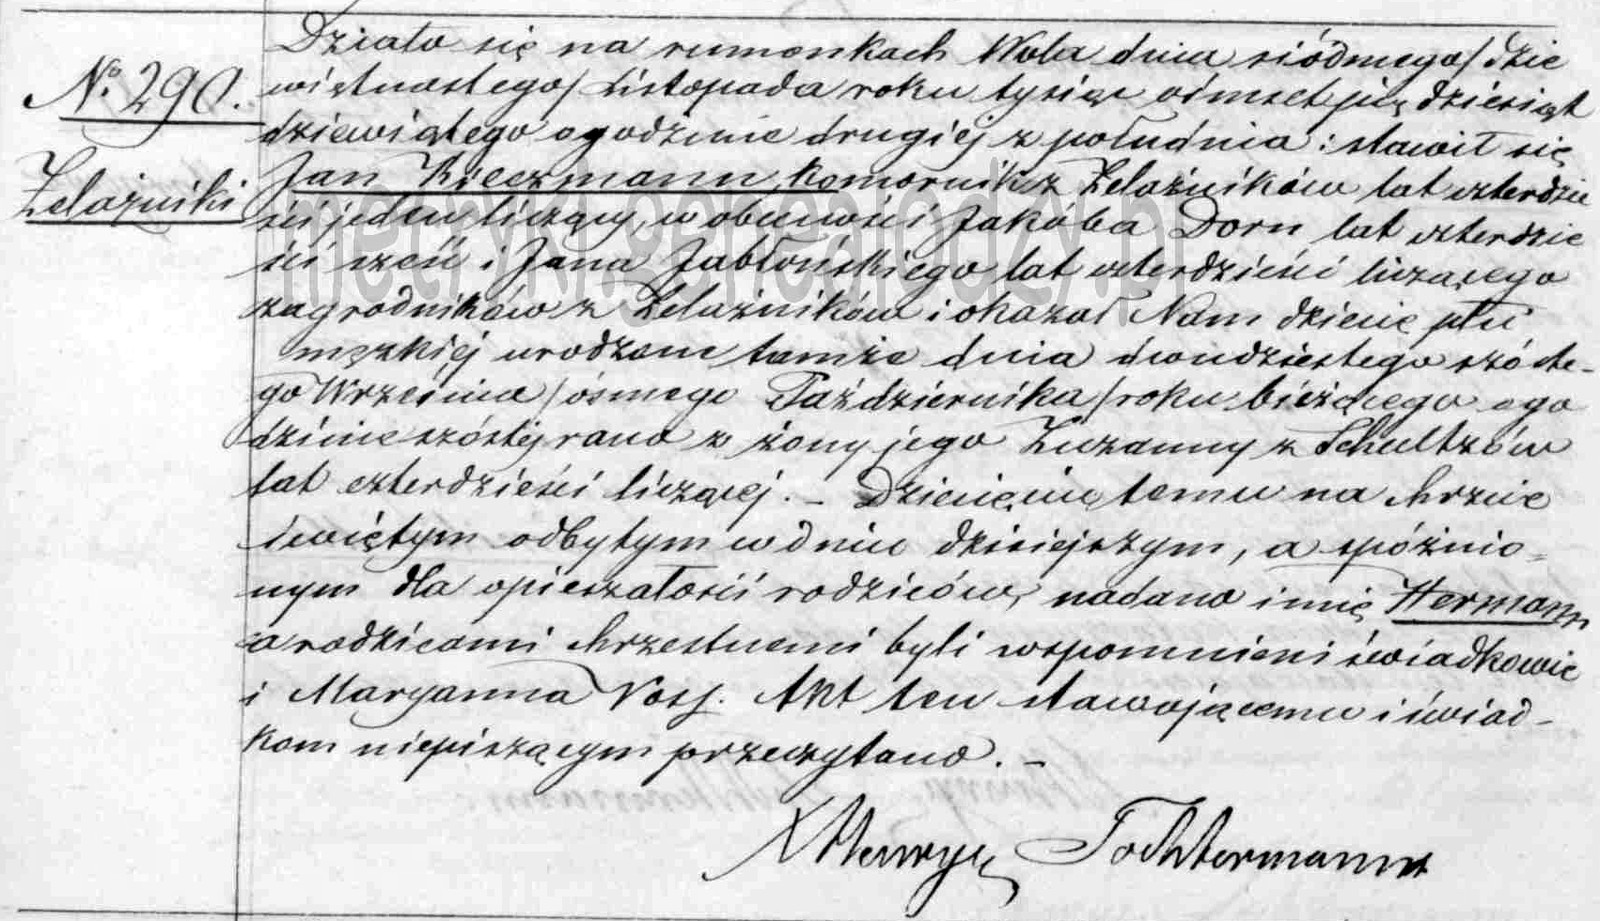 Działo się na rumonkach Wola dnia siódmego / dzie
No. 290.
więtnastego / Listopada roku tysiąc ośmset pięćdziesiąt
dziewiątego o godzinie drugiej z południa: stawił się
Żelaźniki
Jan Krieczmann, komornik z Żelaźników lat czterdzie
ści jeden liczący, w obecności Jakóba Dorn lat czterdzie
ści sześć i Jana Jabłońskiego lat czterdzieści liczącego
zagrodników z Żelaźników i okazał Nam dziecię płci
męzkiéj urodzone tamże dnia dwudziestego szóste-
go Września / ósmego Października / roku bieżącego o go
dzinie szóstéj rano z żony jego Zuzanny z Schultzów
lat czterdzieści liczącej. – Dziecięciu temu na chrzcie
świętym odbytym w dniu dzisiejszym, a spóźnio=
nym dla opieszałości rodziców, nadano imię Hermann
a rodzicami chrzestnemi byli wspomnieni świadkowie
i Maryanna Voss. Akt ten stawającemu i świad-
kom niepiszącym przeczytano. –
X Henryk Tochtermann
metryki.genealodzy.pl